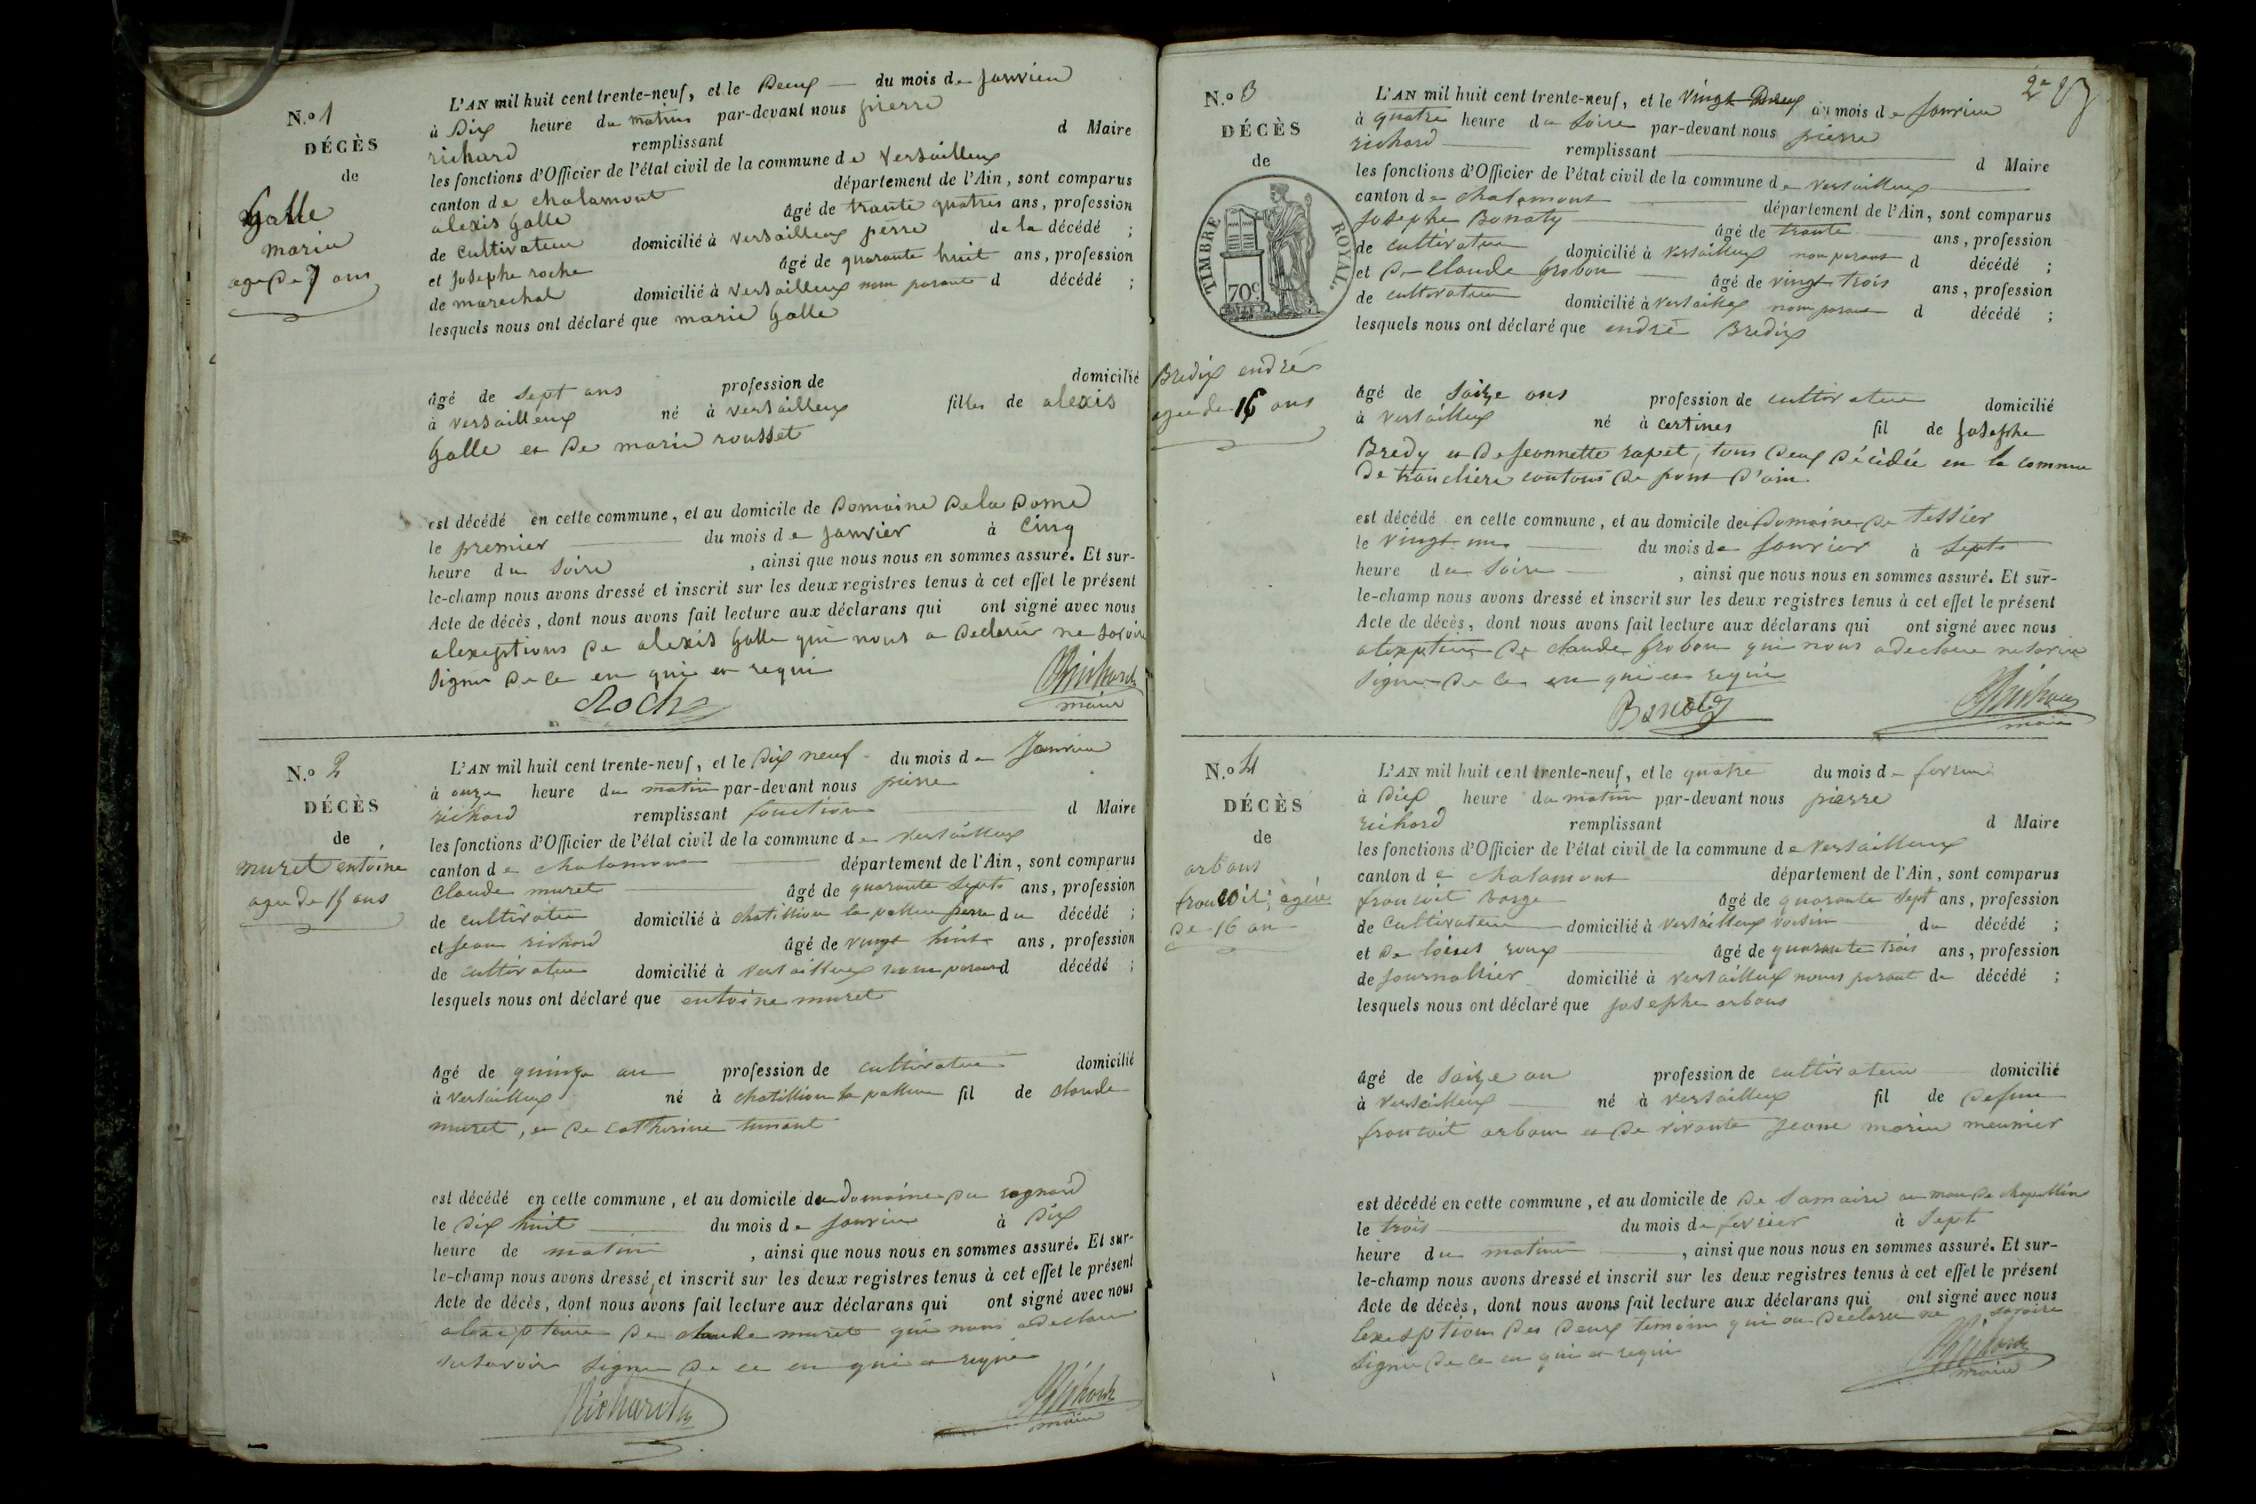 N.º 1
DÉCÈS
de
Galle
marie
agee de 7 ans
L'AN mil huit cent trente-neuf, et le Deux du mois de janvier
à Dix heure du matin par-devant nous pierre
richard remplissant d Maire
les fonctions d'Officier de l'état civil de la commune de Versailleux
canton de chalamont département de l'Ain, sont comparus
alexis Galle âgé de trante quatres ans, profession
de cultivateur domicilié à versailleux perre de la décédé ;
et Josephe roche âgé de quarante huit ans, profession
de marechal domicilié à versailleux non parant d décédé ;
lesquels nous ont déclaré que marie Galle
âgé de sept ans profession de domicilié
à versailleux né à versailleux filles de alexis
Galle et de marie rousset
est décédé en cette commune, et au domicile de Domaine De la Dame
le premier du mois de janvier à cinq
heure du soire , ainsi que nous nous en sommes assuré. Et sur-
le-champ nous avons dressé et inscrit sur les deux registres tenus à cet effet le présent
Acte de décès, dont nous avons fait lecture aux déclarans qui ont signé avec nous
alexeptions de alexis Galle qui nous a declarir ne savoir
signer De ce en qui et requi
Roche Richard
maire
N.º 2
DÉCÈS
de
muret antoine
agee de 15 ans
L'AN mil huit cent trente-neuf, et le Dix neuf du mois de Janvier
à onze heure du matin par-devant nous pierre
richard remplissant fonction d Maire
les fonctions d'Officier de l'état civil de la commune de versailleux
canton de chalamont département de l'Ain, sont comparus
claude muret âgé de quarante sept ans, profession
de cultivateur domicilié à chatillion la pallue perre du décédé ;
et jean richard âgé de vingt huit ans, profession
de cultivateur domicilié à versailleux non parand décédé ;
lesquels nous ont déclaré que antoine muret
âgé de quinze an profession de cultivateur domicilié
à versailleux né à chatillion la pallue fil de claude
muret, et de catherine
est décédé en cette commune, et au domicile du domaine du
le dix huit du mois de janvier à Dix
heure de matin , ainsi que nous nous en sommes assuré. Et sur-
le-champ nous avons dressé et inscrit sur les deux registres tenus à cet effet le présent
Acte de décès, dont nous avons fait lecture aux déclarans qui ont signé avec nous
de claude muret qui nous a declare
ne savoir signer de ce en qui et requi
Richard Richard
maire
N.º 3
DÉCÈS
de
TIMBRE ROYAL.
70c
Bredix andré
agee de 16 ans
L'AN mil huit cent trente-neuf, et le vingt Deux du mois de Janvier
à quatre heure du soire par-devant nous pierre
richard remplissant d Maire
les fonctions d'Officier de l'état civil de la commune de versailleux
canton de chalamont département de l'Ain, sont comparus
josephe Bonaty âgé de trante ans, profession
de cultivateur domicilié à versailleux non parant d décédé ;
et De Claude Grobon âgé de vingt trois ans, profession
de cultivateur domicilié à versailleux non parant d décédé ;
lesquels nous ont déclaré que andré Bredix
âgé de saize ans profession de cultivateur domicilié
à versailleux né à certines fil de josephe
Bredy et de jeannette rapet, tous deux Décédée en la commune
De tranclière contons de pont d'ain
est décédé en cette commune, et au domicile de Domaine de tessier
le vingt un du mois de janvier à sept
heure du soire , ainsi que nous nous en sommes assuré. Et sur-
le-champ nous avons dressé et inscrit sur les deux registres tenus à cet effet le présent
Acte de décès, dont nous avons fait lecture aux déclarans qui ont signé avec nous
de claude Grobon qui nous a declare ne savoir
signer de ce en qui et requi
Richard
maire
N.º 4
DÉCÈS
de
arbans
de 16 an
L'AN mil huit cent trente-neuf, et le quatre du mois de
à Dix heure du matin par-devant nous pierre
richard remplissant d Maire
les fonctions d'Officier de l'état civil de la commune de versailleux
canton de chalamont département de l'Ain, sont comparus
âgé de quarante sept ans, profession
de cultivateur domicilié à versailleux voisin du décédé ;
et De roux âgé de quarante trois ans, profession
de journallier domicilié à versailleux nonus parant du décédé ;
lesquels nous ont déclaré que josephe arbans
âgé de saize an profession de cultivateur domicilié
à versailleux né à versailleux fil de Defun
arban et de vivante jeane marie meunier
est décédé en cette commune, et au domicile de
le trois du mois de fevrier à sept
heure du matin , ainsi que nous nous en sommes assuré. Et sur-
le-champ nous avons dressé et inscrit sur les deux registres tenus à cet effet le présent
Acte de décès, dont nous avons fait lecture aux déclarans qui ont signé avec nous
Des Deux temoins qui on declaree ne savoire
signer De ce en qui et requi
Richard
maire